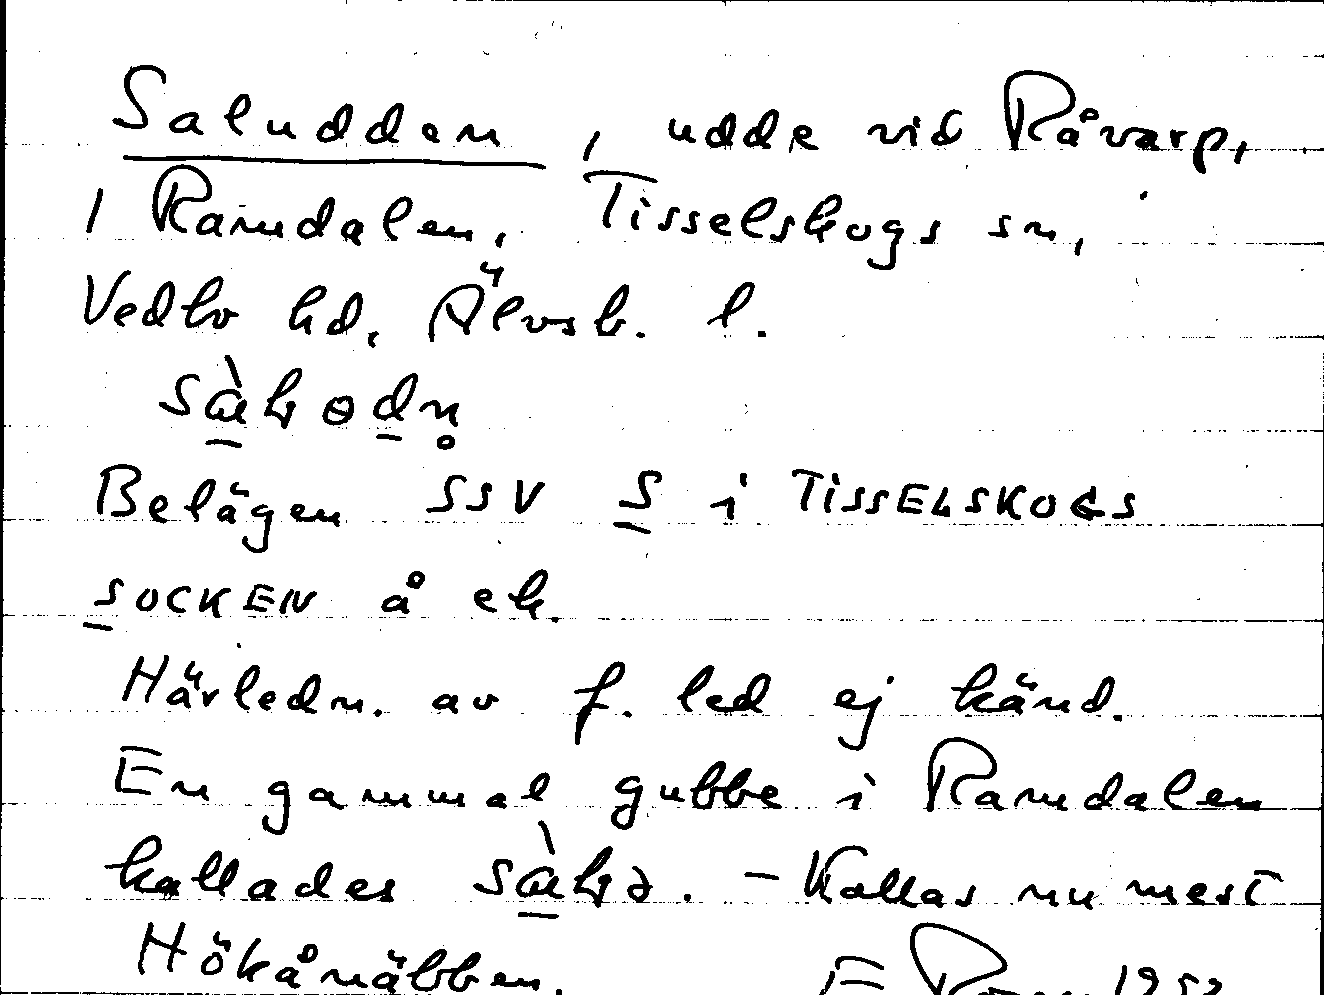 Saludden, udde vid Råvarp,
i Ramdalen, Tisselskogs sn,
Vedbo hd, Älvsb. l.
Belägen SSV S i TISSELSKOGS
SOCKEN å ek.
Härledn. av f. led ej känd.
En gammal gubbe i Ramdalen
kallades . - Kallas nu mest
Hökånäbben.